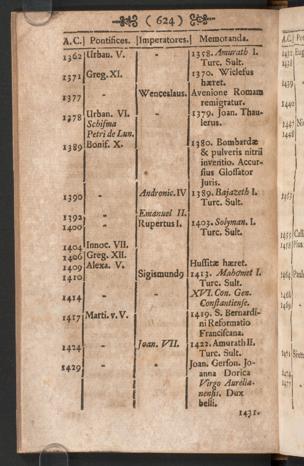 ( 624 )
A.C. Pontifices. Imperatores. Memoranda.
1362 Urban. V. " 1358. Amurath I.
Turc. Sult.
1371 Greg. XI. " 1370. Wiclefus
hæret.
1377 " Wenceslaus. Avenione Romam
remigratur.
1378 Urban. VI. " 1379. Joan. Thau-
Schisma lerus.
Petri de Lun.
1389 Bonif. X. 1380. Bombardæ
& pulveris nitrii
inventio. Accur-
sius Glossator
Juris.
1390 " Andronic. IV 1389. Bajazeth I.
Turc. Sult.
1392 " Emanuel II.
1400 " Rupertus I. 1403. Solyman. I.
Turc. Sult.
1404 Innoc. VII.
1406 Greg. XII.
1409 Alexa. V. Hussitæ hæret.
1410 Sigismund 1413. Mahomet I.
Turc. Sult.
1414 " " XVI. Con. Gen.
Constantiense.
1417 Marti. v. V. 1419. S. Bernardi-
ni Reformatio
Franciscana.
1424 " Joan. VII. 1422. Amurath II.
Turc. Sult.
1429 " " Joan. Gerson. Jo-
anna Dorica
Virgo Aurelia-
nensis. Dux
belli.
1431.